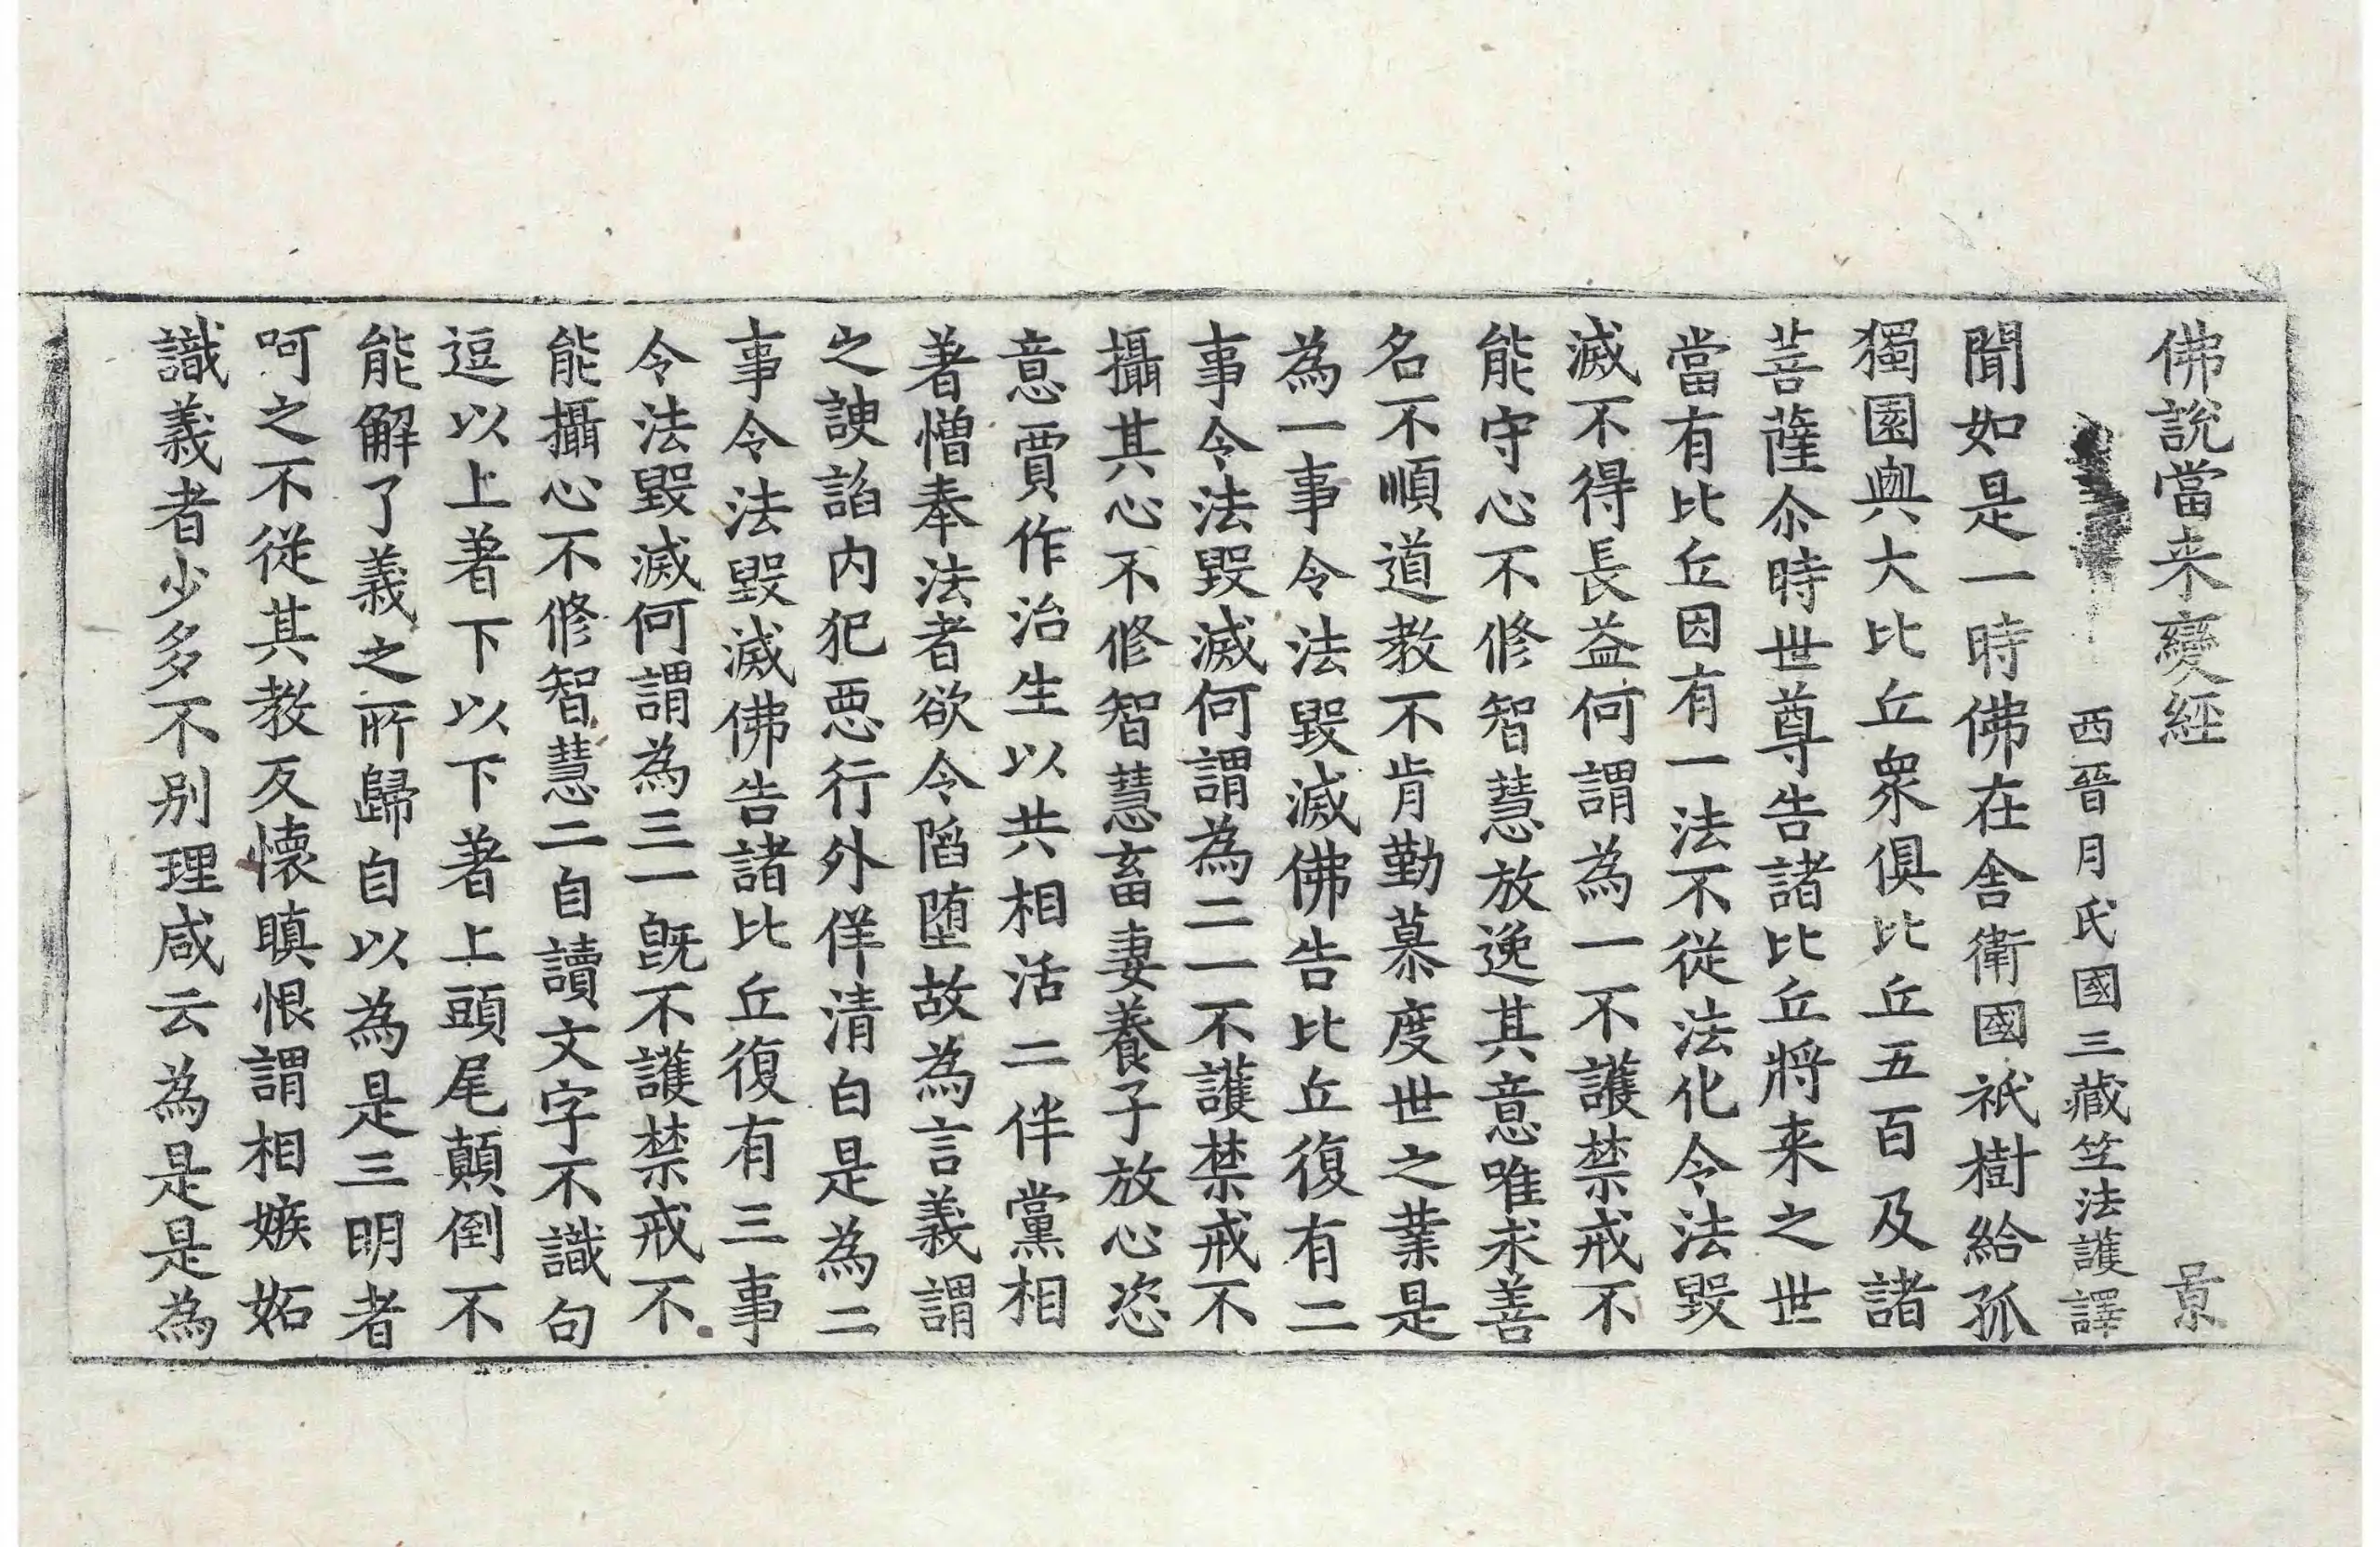 佛說當来變経 景
西晉月氏國三藏竺法護譯
聞如是一時佛在舎衛國祇樹給孤
獨園與大比丘衆俱比丘五百及諸
菩薩尒時世尊告諸比丘將来之世
當有比丘因有一法不從法化令法毀
滅不得長益何謂為一不護禁戒不
能守心不修智慧放逸其意唯求善
名不順道教不肯勤慕度世之業是
為一事令法毀滅佛告比丘復有二
事令法毀滅何謂為二一不護禁戒不
攝其心不修智慧畜妻養子放心恣
意賈作治生以共相活二伴黨相
著憎奉法者欲令陷墮故為言義謂
之諛諂内犯惡行外佯清白是為二
事令法毀滅佛告諸比丘復有三事
令法毀滅何謂為三一既不護禁戒不
能攝心不修智慧二自讀文字不識句
逗以上著下以下著上頭尾顛倒不
能解了義之所歸自以為是三明者
呵之不從其教反懷瞋恨謂相嫉妬
識義者少多不别理咸云為是是為